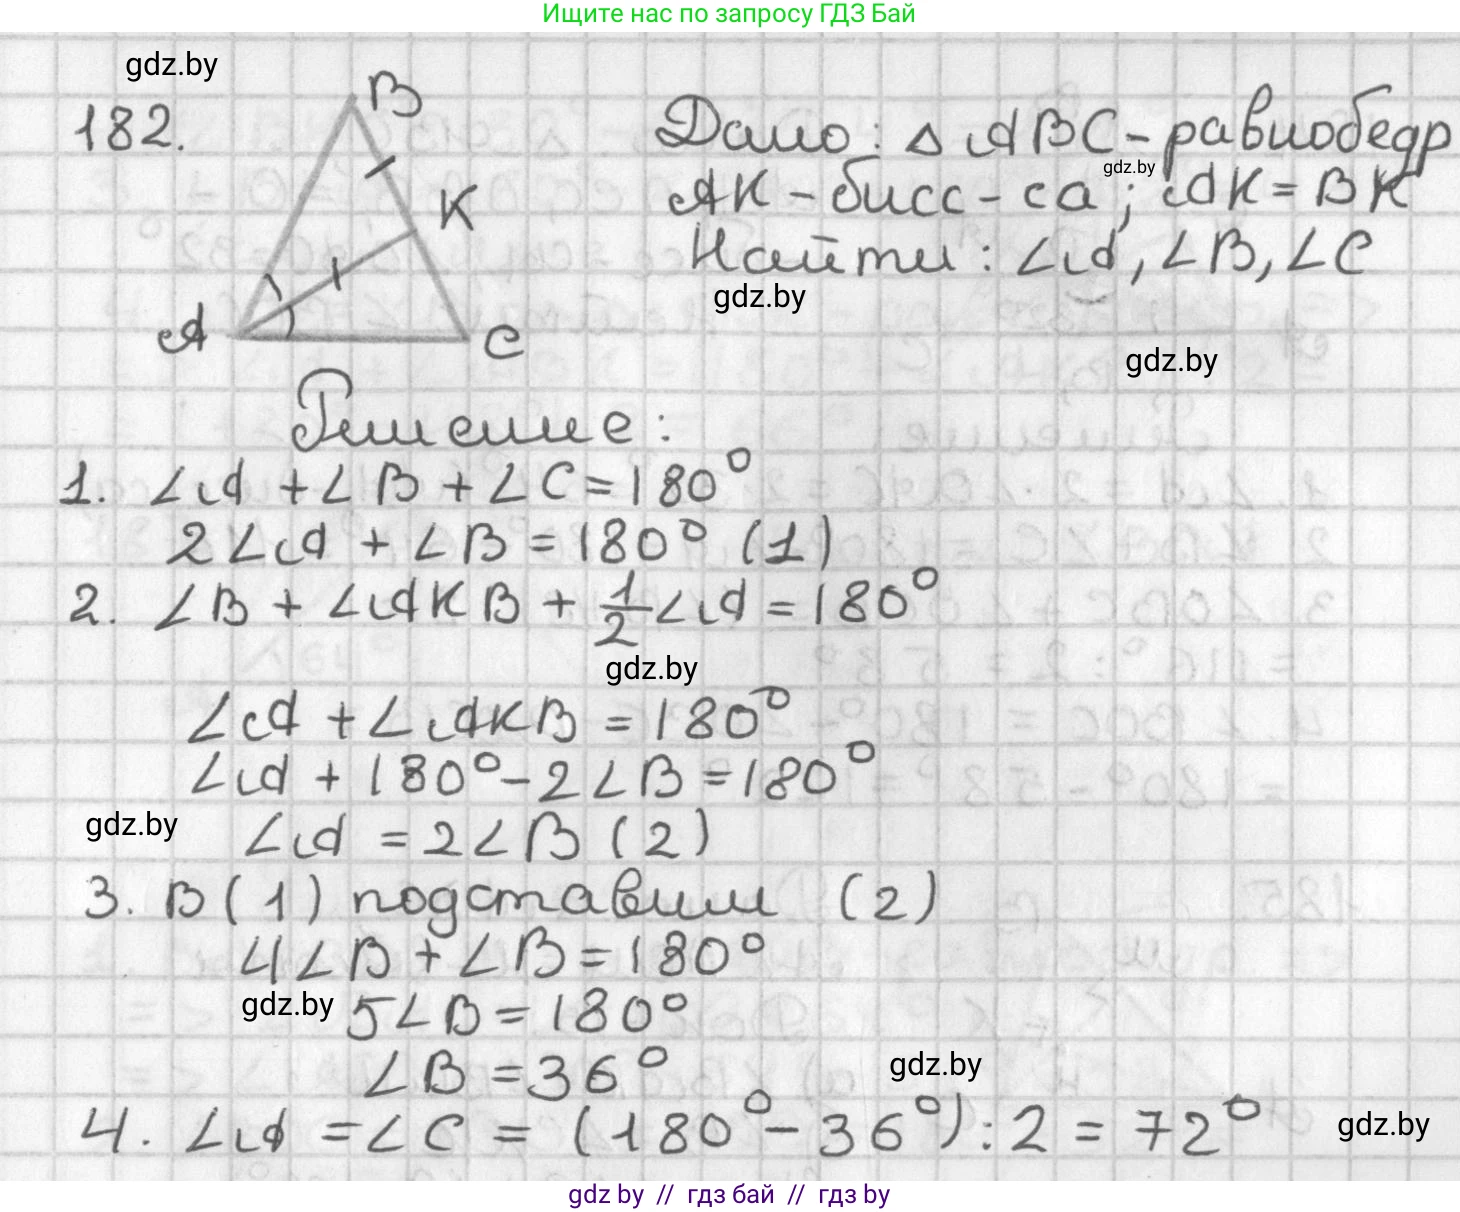 Ищите нас по запросу ГДЗ Бай
gdz.by
182.
B
K
A
C
Дано: △ ABC - равнобедр
gdz.by
AK - бисс-са; AK = BK
Найти: ∠A, ∠B, ∠C
gdz.by
gdz.by
Решение:
1. ∠A + ∠B + ∠C = 180°
2∠A + ∠B = 180° (1)
2. ∠B + ∠AKB + 1/2 ∠A = 180°
gdz.by
∠A + ∠AKB = 180°
∠A + 180° - 2∠B = 180°
gdz.by
∠A = 2∠B (2)
3. В (1) подставим (2)
4∠B + ∠B = 180°
gdz.by
5∠B = 180°
∠B = 36°
gdz.by
4. ∠A = ∠C = (180° - 36°) : 2 = 72°
gdz.by
gdz by // гдз бай // гдз by